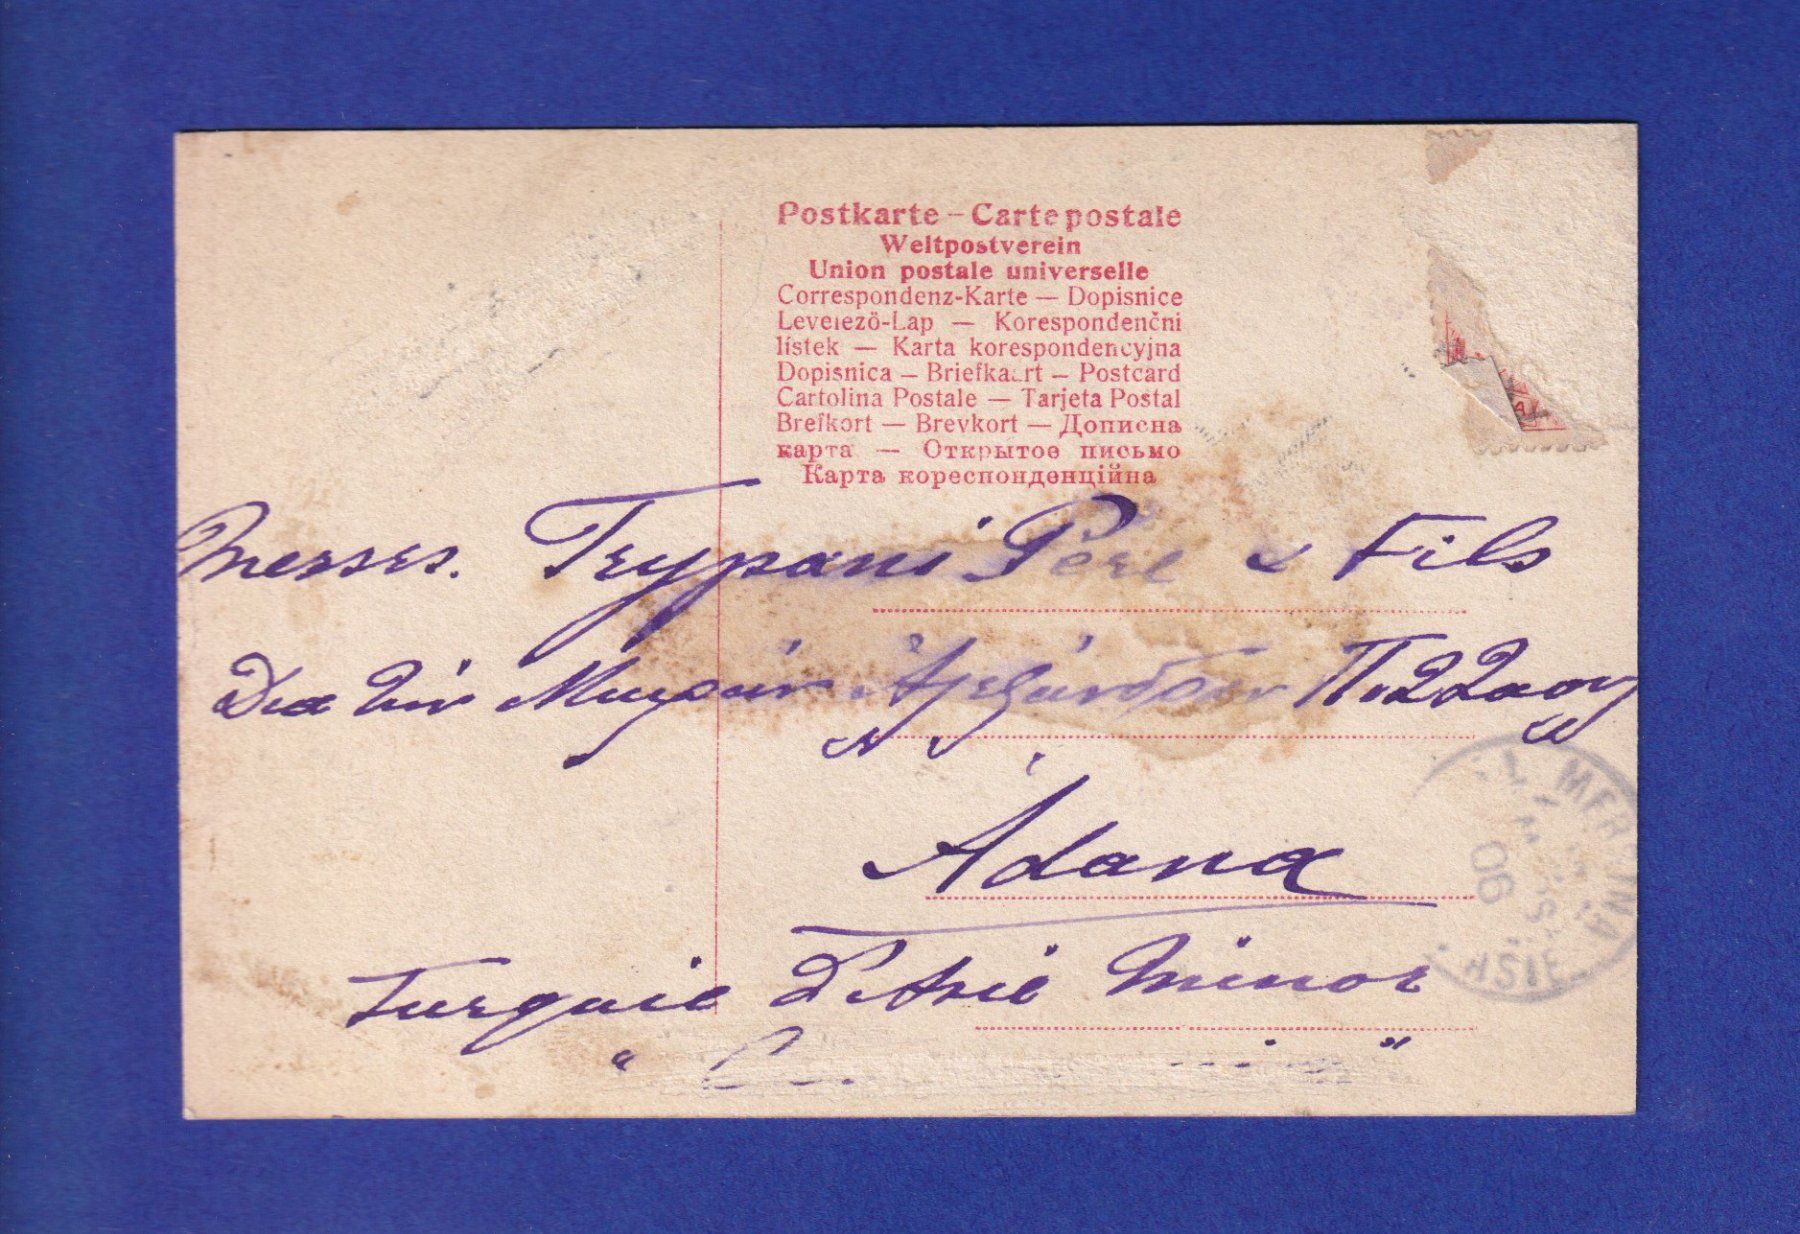 Postkarte – Carte postale
Weltpostverein
Union postale universelle
Correspondenz-Karte — Dopisnice
Levelező-Lap — Korespondenční
lístek — Karta korespondencyjna
Dopisnica — Briefkaart — Postcard
Cartolina Postale — Tarjeta Postal
Brefkort — Brevkort — Дописна
карта — Открытое письмо
Карта кореспонденційна
Messrs. Trypani Père & Fils
Διά τήν Μυρσίν
Adana
Turquie d'Asie Minor
06